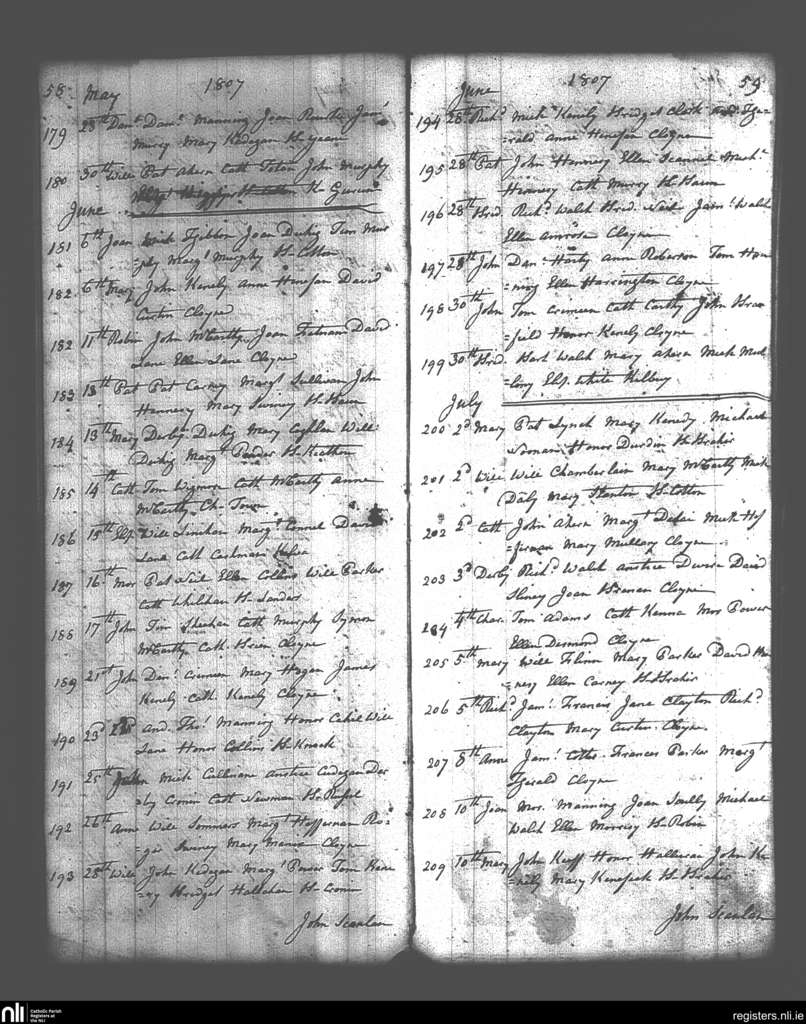 58 May 1807
179 28th Danl Danl Manning Joan Jam
Murry Mary Kedagan H.
180 30th Will Pat Ahern Cath Tobin John Murphy
H.
June
181 6th Joan Mick Fgibbon Joan Duhig Tim Mur
=phy Margt Murphy H. Cotton
182 6th Mary John Kenely Anne Henesan David
Curtin Cloyne
182 11th Robin John McCarthy Joan David
Lane Ellen Lane Cloyne
183 13th Pat Pat Carney Margt Sullivan John
Hennesy Mary H.
184 13th Mary Derby Duhig Mary Coghlan Will
Duhig Margt Ponder H.
185 14th Cath Tom Wigmore Cath McCarthy Anne
McCarthy Ch. Town
186 15th Elz. Will Linehan Margt Connel David
Lane Cath Cashman
187 16th Mor Pat Neil Ellen Collins Will Parker
Cath Whelehan H. Sanders
188 17th John Tom Sheehan Cath Murphy Symon
McCarthy Cath Brien Cloyne
189 21st John Danl Crimeen Mary Hogan James
Kenely Cath Kenely Cloyne
190 23d And. Thos Manning Honor Cahil Will
Lane Honor Collins H. Knock
191 25th Mick Cullinane Anstice Cadogan Der
=by Cronin Cath Newman H.
192 26th Anne Will Sommers Margt Heffernan Ro=
=ger Sweeney Mary Cloyne
193 28th Will John Kedagan Margt Power Tom Kene
=dy Bridget Hallahan H. Cronin
John Scanlan
June 1807 59
194 28th Richd Mick Kenely Bridget Clark Fzge=
=rald Anne Henesan Cloyne
195 28th Pat John Hennesy Ellen Scannel Michl
Hennesy Cath Murry H.
196 28th Brid. Richd Walsh Brid. Neil Jams Walsh
Ellen Ambrose Cloyne
197 28th John Danl Harty Anne Roberson Tom
=ning Ellen Harrington Cloyne
198 30th John Tom Crimeen Cath Carthy John Bran
=field Honor Kenely Cloyne
199 30th Brid. Bart Walsh Mary Ahern Mick
=lony Elz. White Kilbeg
July
200 2d Mary Pat Lynch Mary Kenedy Michael
Noonan Honor Durdin H. Braher
201 2d Will Will Chamberlain Mary McCarthy Mick
Daly Mary Stanton H. Cotton
202 2d Cath John Ahern Margt Mick Hef
=fernan Mary Mullony Cloyne
203 3d Derby Richd Walsh Anstice David
Joan Brenan Cloyne
204 4th Char. Tom Adams Cath Kenna Mor Power
Ellen Desmond Cloyne
205 5th Mary Will Flinn Mary Parker David He
=nesy Ellen Carney H. Braher
206 5th Richd Jams Francis Jane Clayton Richd
Clayton Mary Curtin Cloyne.
207 8th Anne Jams Cotter Frances Parker Margt
Fgerald Cloyne
208 10th Joan Mor. Manning Joan Scully Michael
Walsh Ellen Morrisy H. Robin
209 10th Mary John Keeff Honor Halloran John Ke
=nely Mary Kenefick H. Braher
John Scanlan
nli Catholic Parish Registers at the NLI
registers.nli.ie